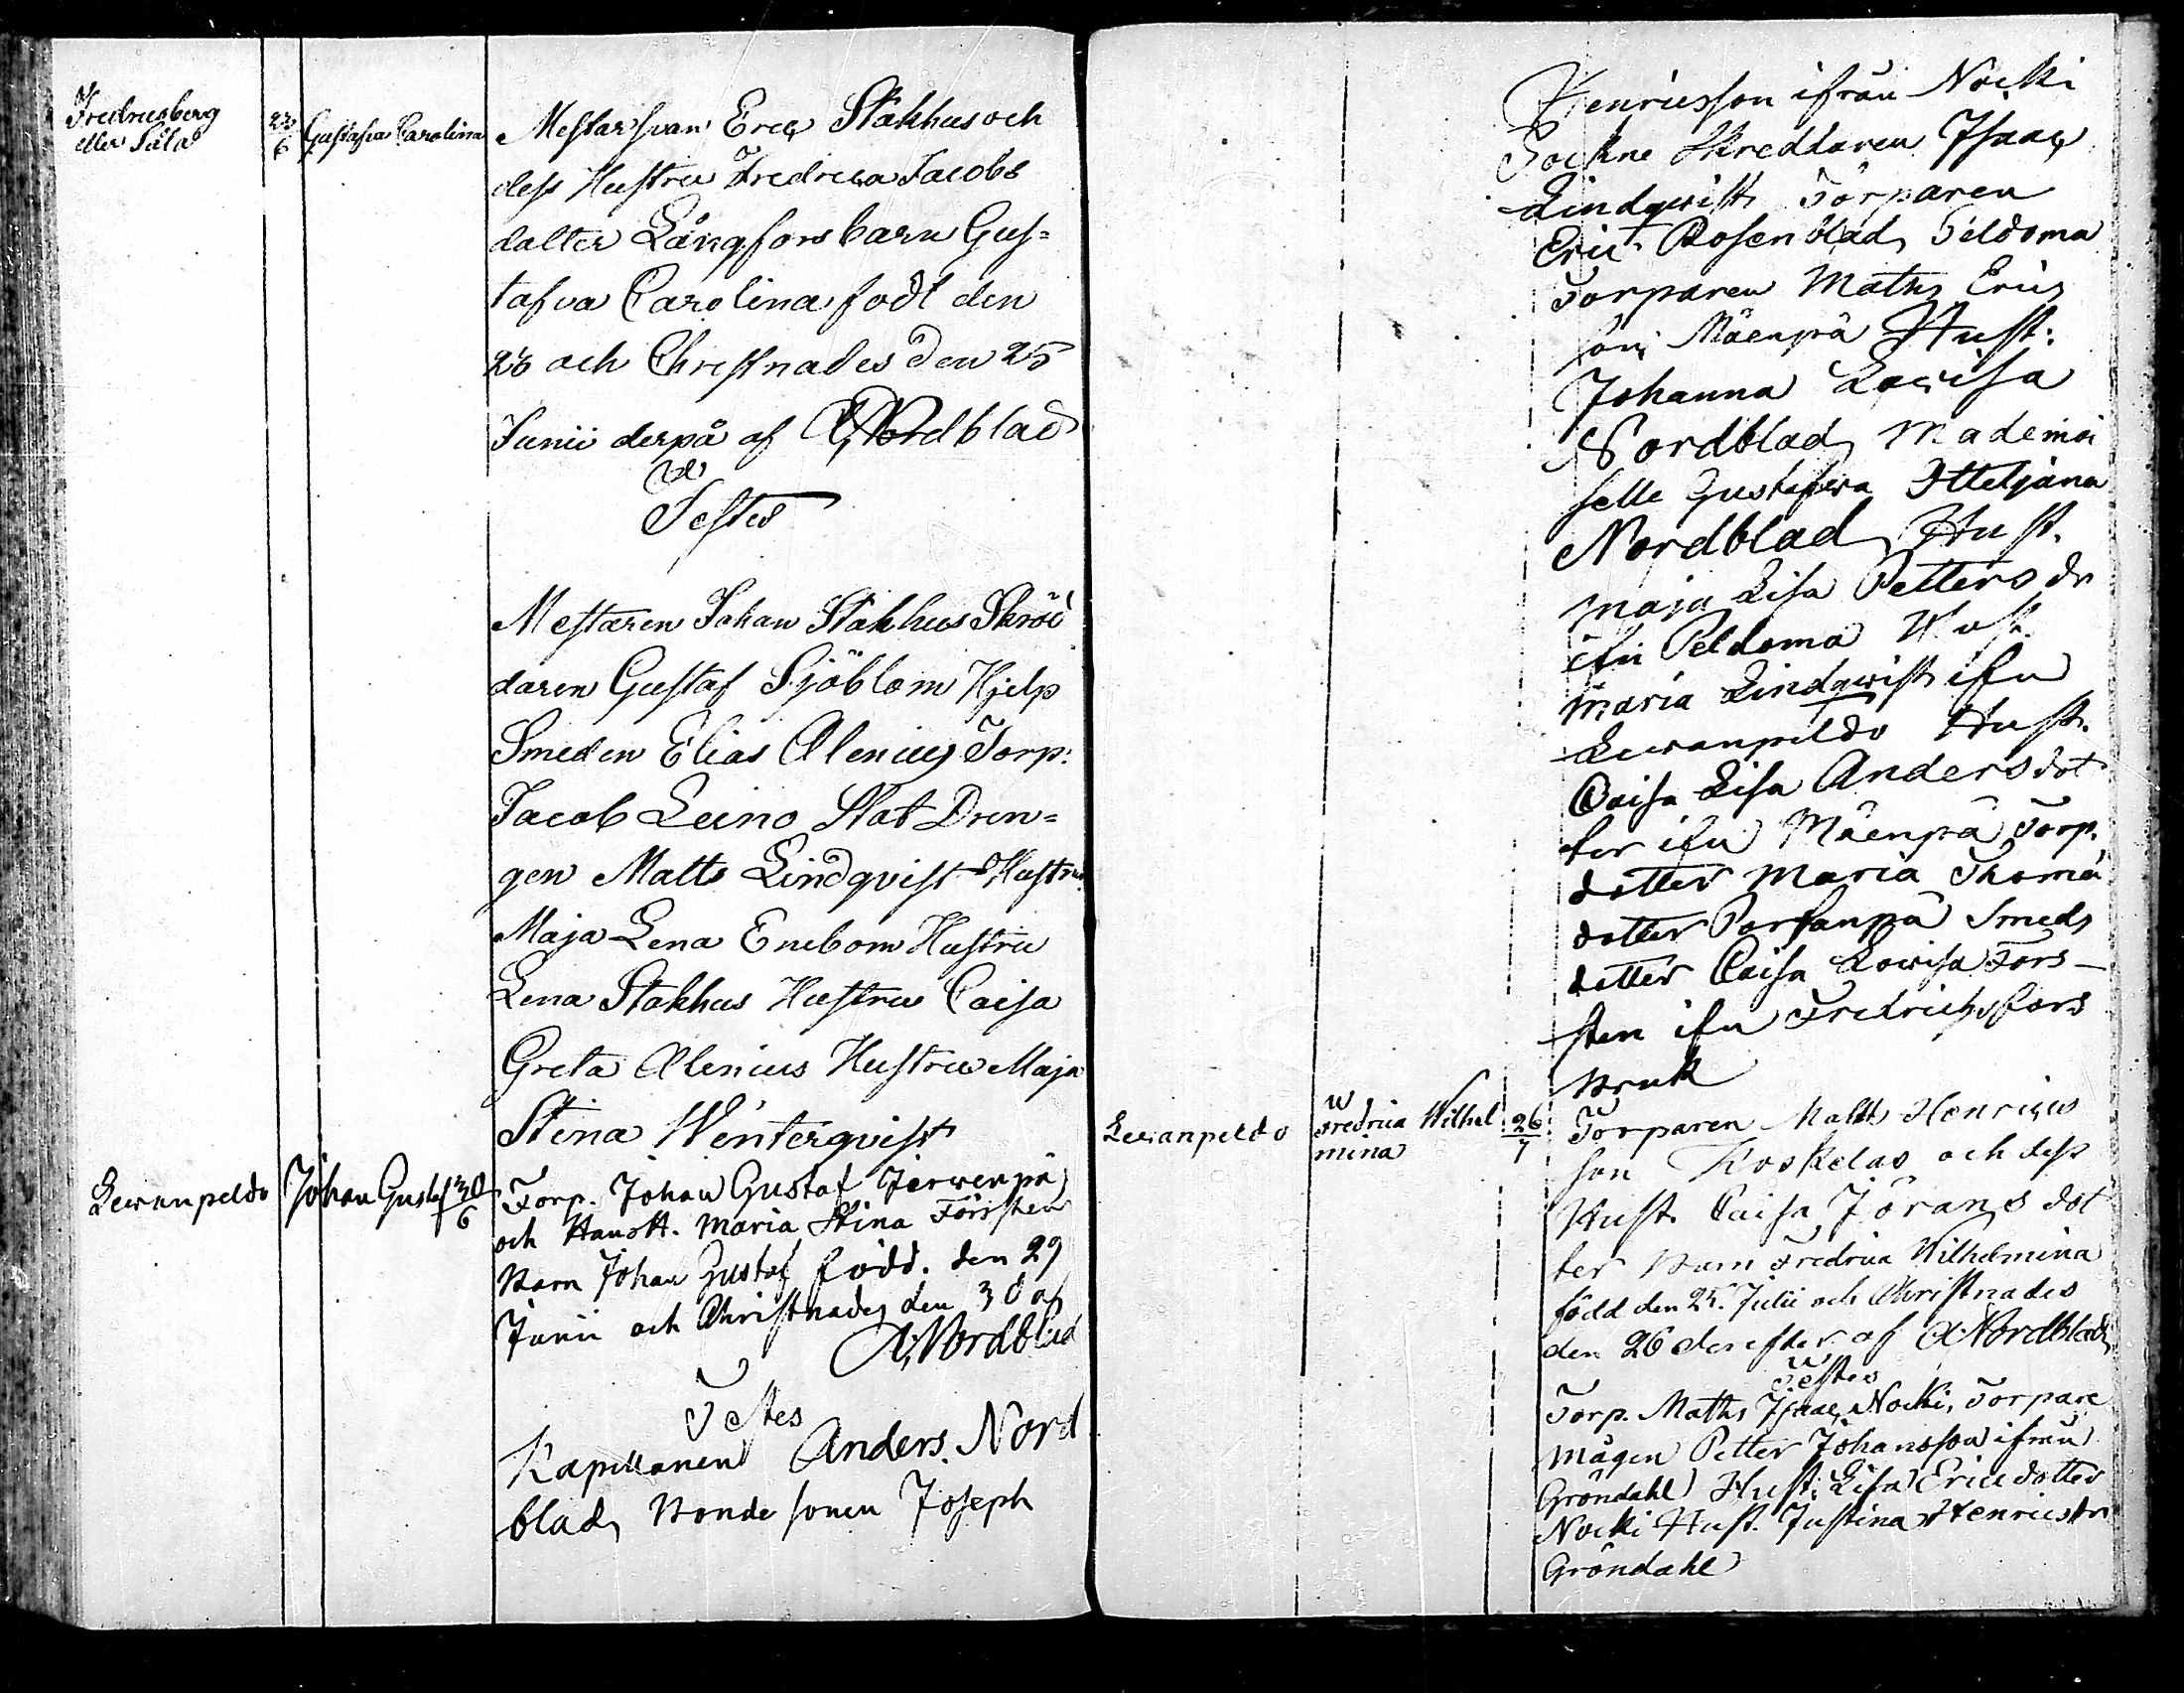 Fredricsberg
eller Påla
23
6
Gustafva Carolina
Mestarsvan Eric Stakhus och
dess Hustru Fredrica Jacobs
dalter Långfors barn Gus=
tafva Carolina fodt den
23 och Christnades den 25
Junii derpå af A: Nordblad
Testes
Mestaren Johan Stakhus Skröd
daren Gustaf Sjöblom Hjelp
Smeden Elias Alenius Torp:
Jacob Leino Stat Dren=
gen Matts Lindqvist Hustru
Maja Lena Enebom Hustru
Lena Stakhus Hustru Caisa
Greta Alenius Hustru Maja
Stina Winterqvist
Lewanpeldo
Johan Gustaf
30
6
Torp. Johan Gustaf Jerwenpä
och Hanstt. Maria Stina Forssten
Barn Johan Gustaf född. den 29
Junii och Christnades den 30 af
A; Nordblad
Testes
Kapellanen Anders Nord
blad, Bonde sonen Joseph
Henricsson ifrån Nocki
Sockne Skreddaren Isaac
Lindqwist, Torparen
Eric Rosenblad, Peldoma
Torparen Maths Erics
son, Mäenpä Hust:
Johanna Lowisa
Nordblad, Mademoi
selle Gustafwa Otteljana
Nordblad, Hust.
Maja Lisa Petters dr
ifn Peldoma Hust.
Maria Lindqwist ifn
Lewanpeldo Hust.
Caisa Lisa Anders dot
ter ifn Mäenpä Torp.
dotter Maria Thomä
dotter Porsanpä Smeds
dotter Caisa Lowisa Fors-
sten ifn Fredrichsfors
Bruk
Lewanpeldo
Fredrica Wilhel
mina
26
7
Torparen Matts Henrics
son Koskelas och dess
Hust. Caisa Jörans dot
ter Barn Fredrica Wilhelmina
född den 25. Julii och Christnades
den 26 derefter af A: Nordblad,
Testes
Torp. Maths Isaac Nocki, Torpare
Mågen Petter Johansson ifrån
Gröndahl Hust: Lisa Ericsdotter
Nocki Hust. Justina Henricsdr
Gröndahl